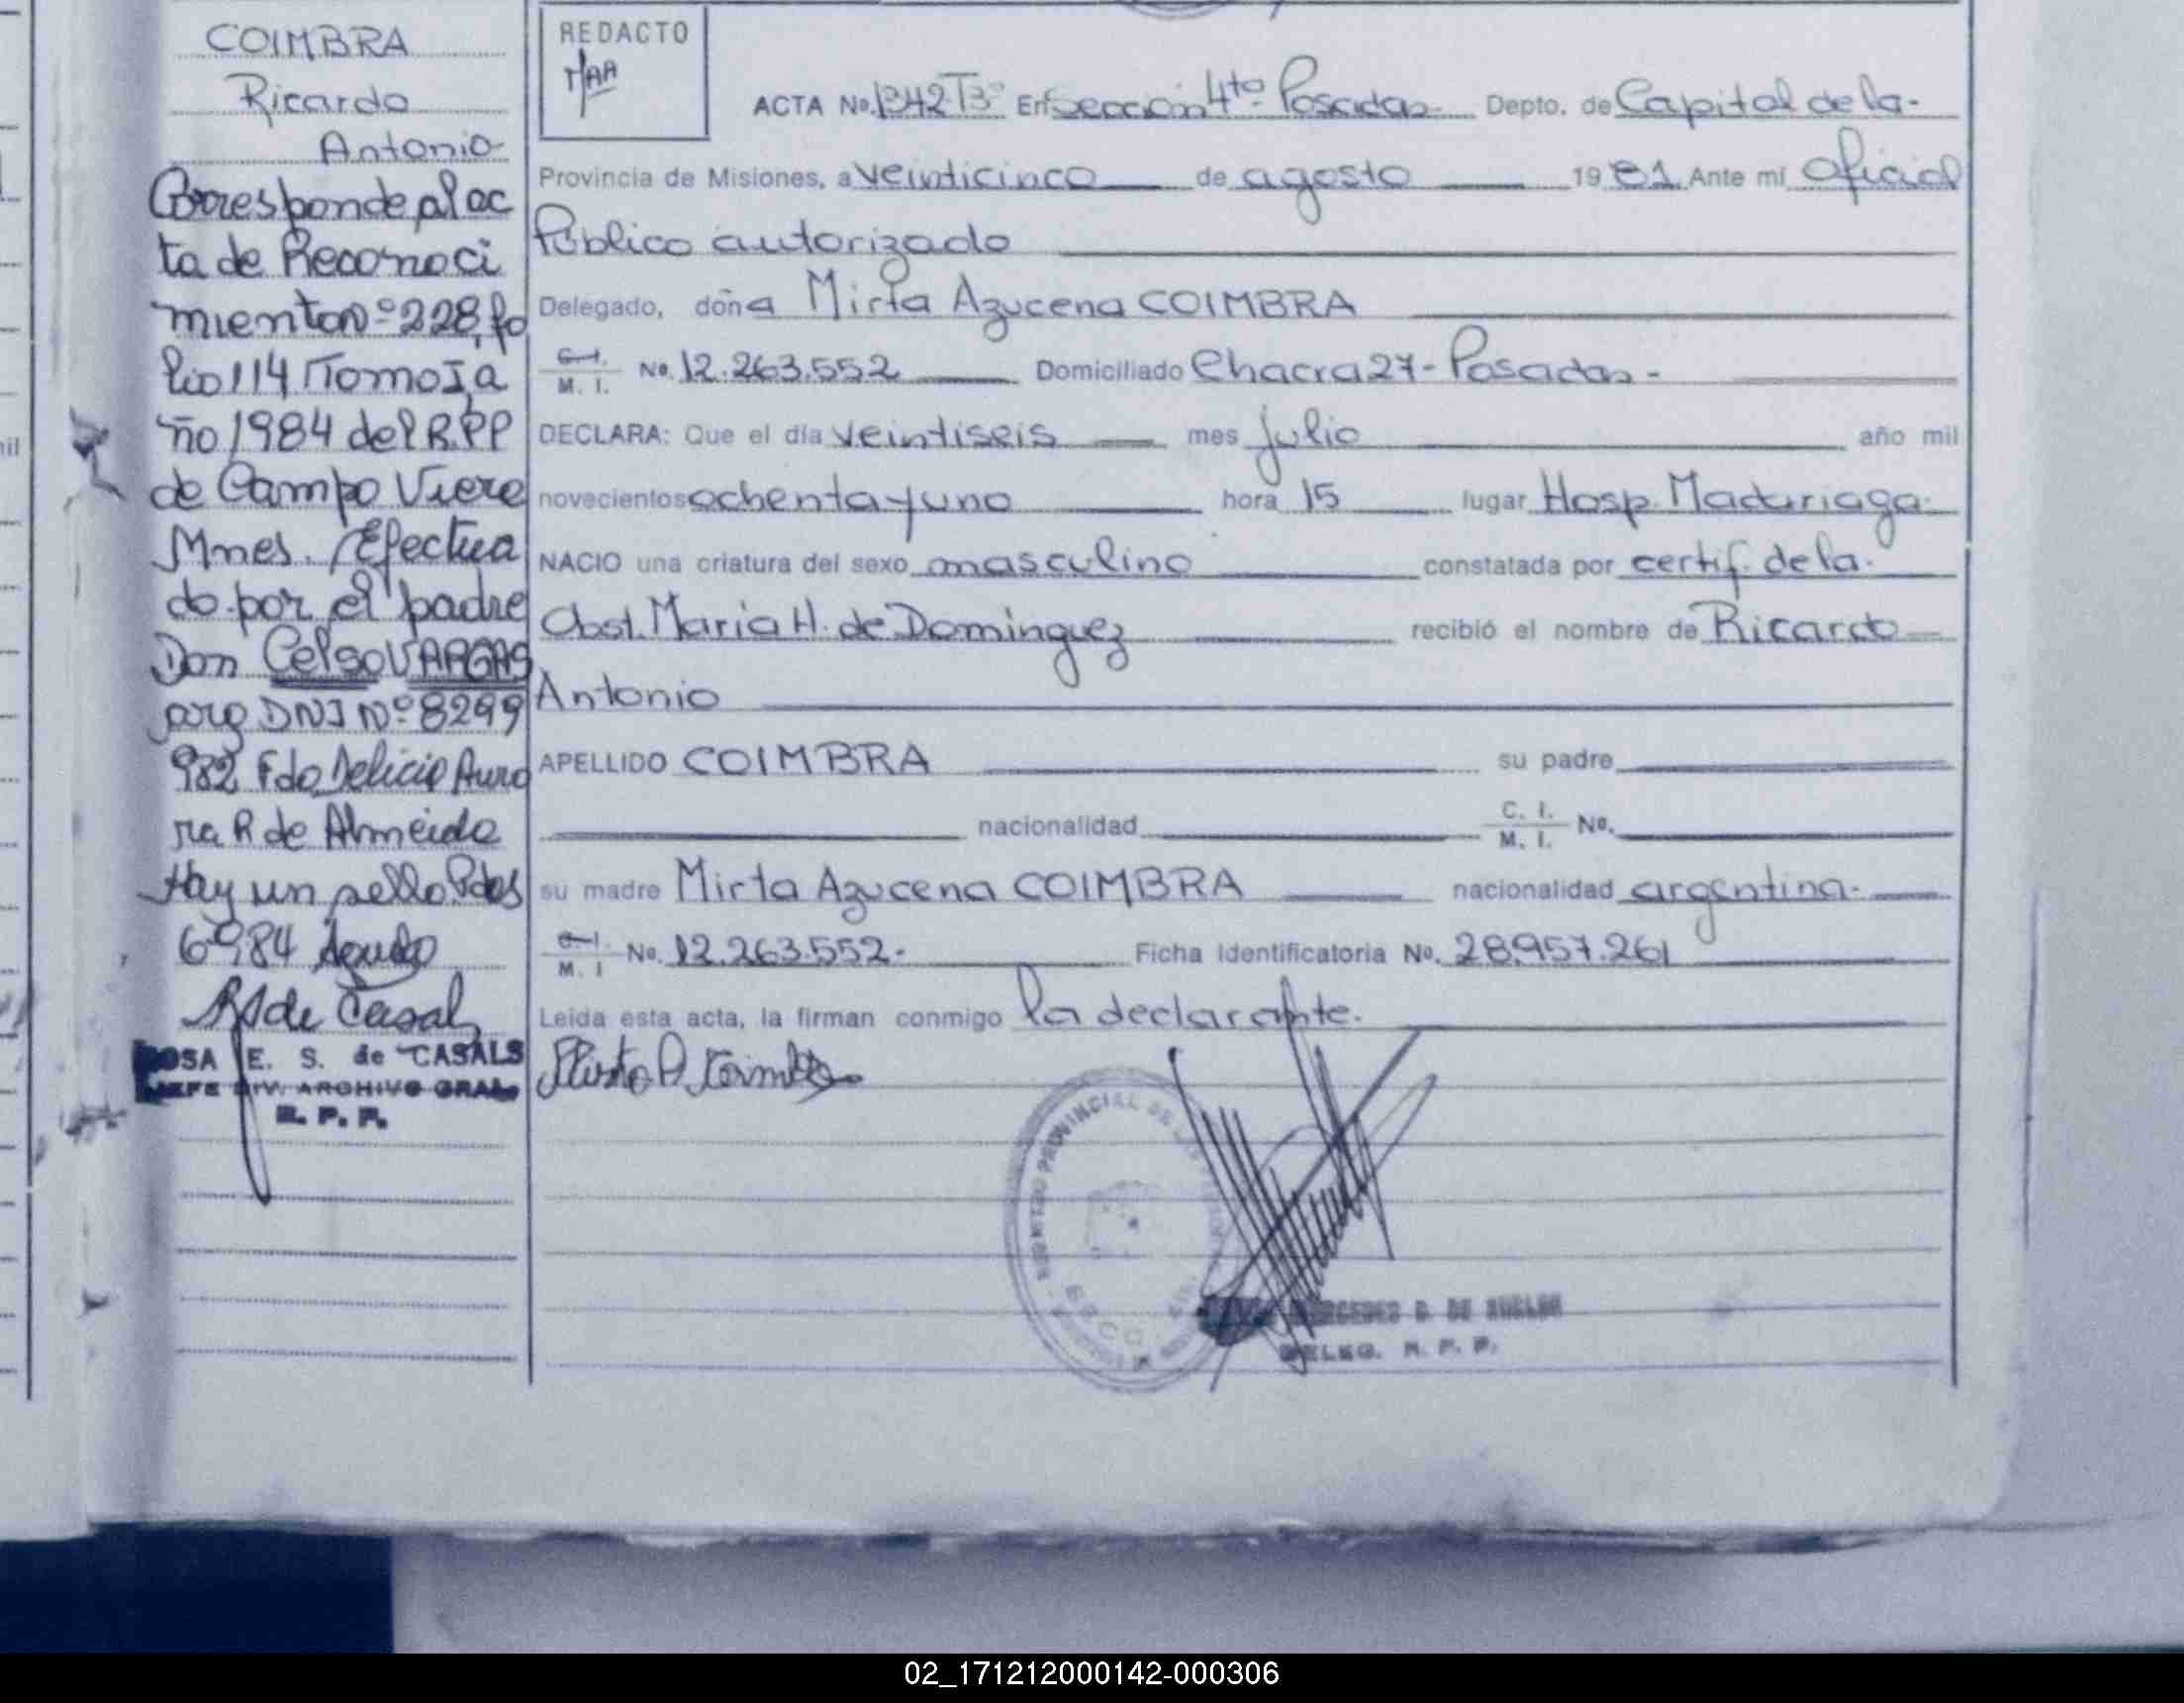 COIMBRA
Ricardo
Antonio
Corresponde al ac
ta de Reconoci
miento nº 228, fo
lio 114 Tomo I, a
ño 1984 del R.P.P
de Campo Viera
Mnes. Efectua
do por el padre
Don Celso VARGAS
arg DNI Nº 8299
982 Fdo Delicia Auro
ra R de Almeida
Hay un sello Pdas
6-9-84
R S de Casals
ROSA E. S. de CASALS
JEFE DIV. ARCHIVO GRAL.
R. P. P.
REDACTO
MAA
ACTA No. 1342 Tº 3º En Sección 4ta Posadas Depto. de Capital de la
Provincia de Misiones, a veinticinco de agosto 1981 Ante mí Oficial
Público autorizado
Delegado, doña Mirta Azucena COIMBRA
C. I.
M. I. No. 12.263.552 Domiciliado Chacra 27 - Posadas -
DECLARA: Que el día veintiseis mes julio año mil
novecientos ochenta y uno hora 15 lugar Hosp. Madariaga
NACIO una criatura del sexo masculino constatada por certif. de la
Obst. Maria H. de Dominguez recibió el nombre de Ricardo
Antonio
APELLIDO COIMBRA su padre
nacionalidad C. I.
M. I. No.
su madre Mirta Azucena COIMBRA nacionalidad argentina
C. I.
M. I No. 12.263.552 Ficha Identificatoria No. 28.957.261
Leida esta acta, la firman conmigo la declarante.
Mirta A Coimbra
PROVINCIAL DE
MERCEDES D. DE
DELEG. R. P. P.
02_171212000142-000306